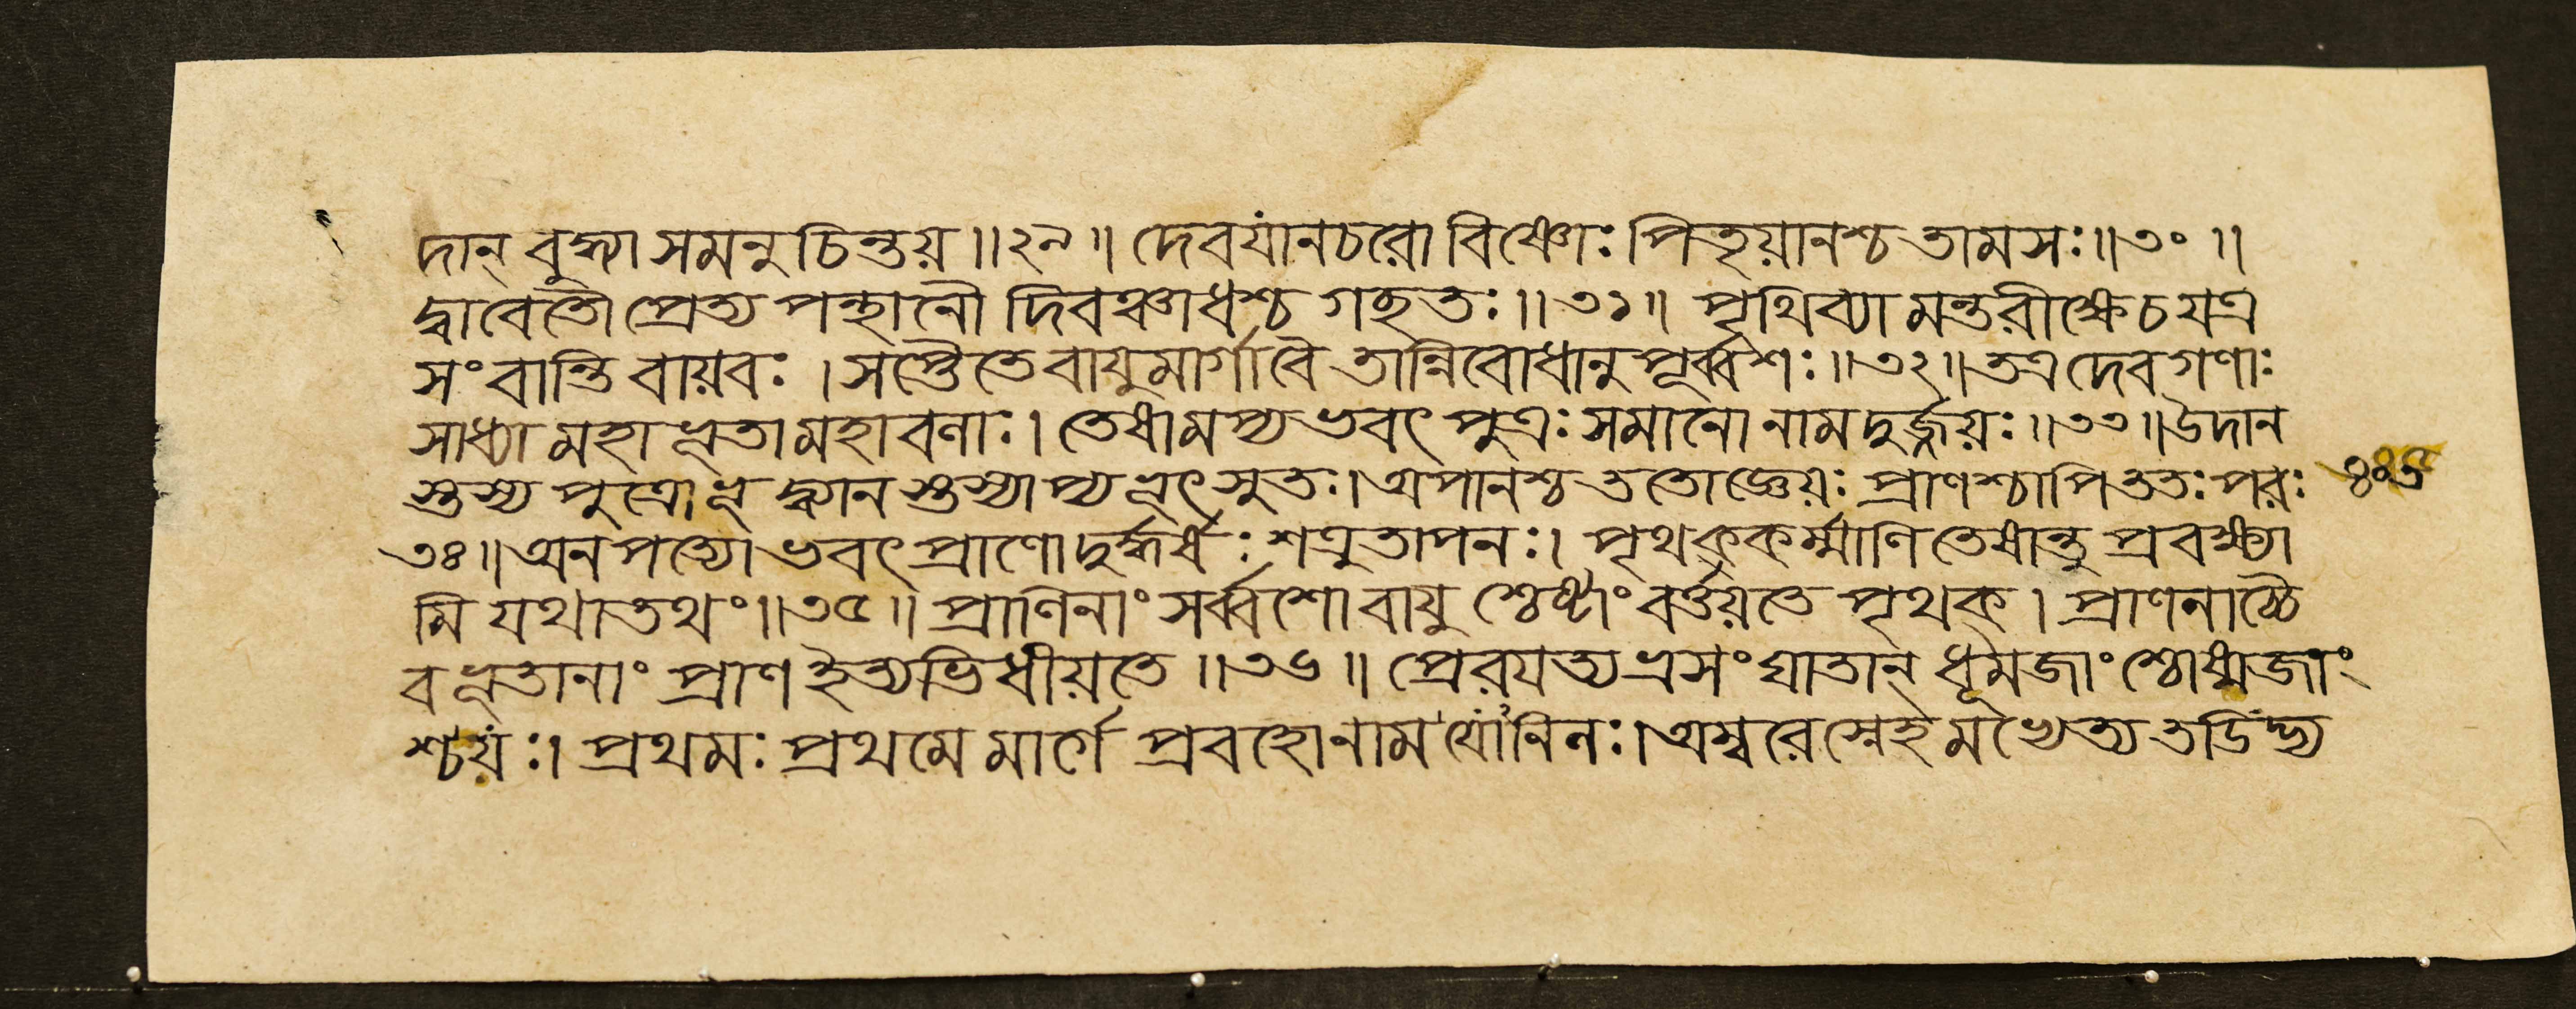 দান্ বুদ্ধ্যা সমনুচিন্তয় ॥ ২৯ ॥ দেবযানচরো বিষ্ণোঃ পিতৃয়ানশ্চ তামসঃ ॥ ৩০ ॥
দ্বাবেতৌ প্রেত্য পন্থানৌ দিবঞ্চাধশ্চ গছতঃ ॥ ৩১ ॥ পৃথিব্যামন্তরীক্ষে চ যত্র
সংবান্তি বায়বঃ । সপ্তৈতে বায়ুমার্গা বৈ তান্নিবোধানুপূর্ব্বশঃ ॥ ৩২ ॥ তত্র দেবগণাঃ
সাধ্যা মহাভূতা মহাবলাঃ । তেষামপ্যভবৎ পুত্রঃ সমানো নাম দুর্জ্জয়ঃ ॥ ৩৩ ॥ উদান
স্তস্য পুত্রোভূদ্ব্যানস্তস্যাপ্যভূৎ সুতঃ । অপানশ্চ ততো জ্ঞেয়ঃ প্রাণশ্চাপি ততঃ পরঃ
৩৪ ॥ অনপত্যোভবৎ প্রাণো দুর্দ্ধর্ষঃ শত্রুতাপনঃ । পৃথক্ কর্ম্মাণি তেষান্তু প্রবক্ষ্যা
মি যথাতথং ॥ ৩৫ ॥ প্রাণিনাং সর্ব্বশো বায়ু শ্চেষ্টাং বর্ত্তয়তে পৃথক্ । প্রাণনাচ্চৈ
ব ভূতানাং প্রাণ ইত্যভিধীয়তে ॥ ৩৬ ॥ প্রেরযত্যভ্রসংঘাতান্ ধূমজাংশ্চোষ্মজাং
শ্চয়ঃ । প্রথমঃ প্রথমে মার্গে প্রবহো নাম যোনিনঃ । অম্বরে স্নেহমখেত্য তডিদ্ভ্য